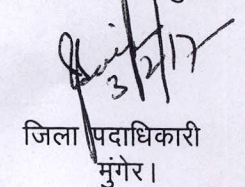 3/2/17
जिला पदाधिकारी
मुंगेर।